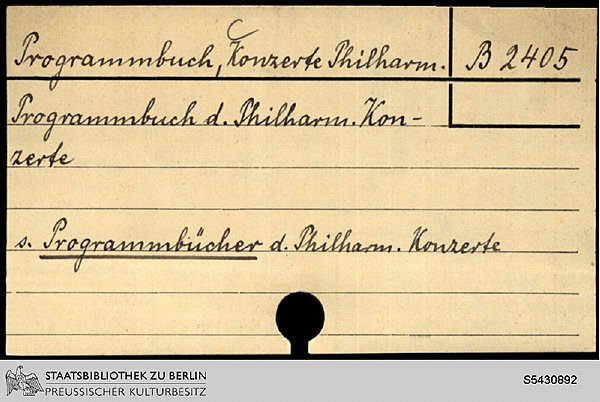 Programmbuch, Konzerte Philharm. B 2405
Programmbuch d. Philharm. Kon-
zerte
s. Programmbücher d. Philharm. Konzerte
STAATSBIBLIOTHEK ZU BERLIN
PREUSSISCHER KULTURBESITZ
S5430892